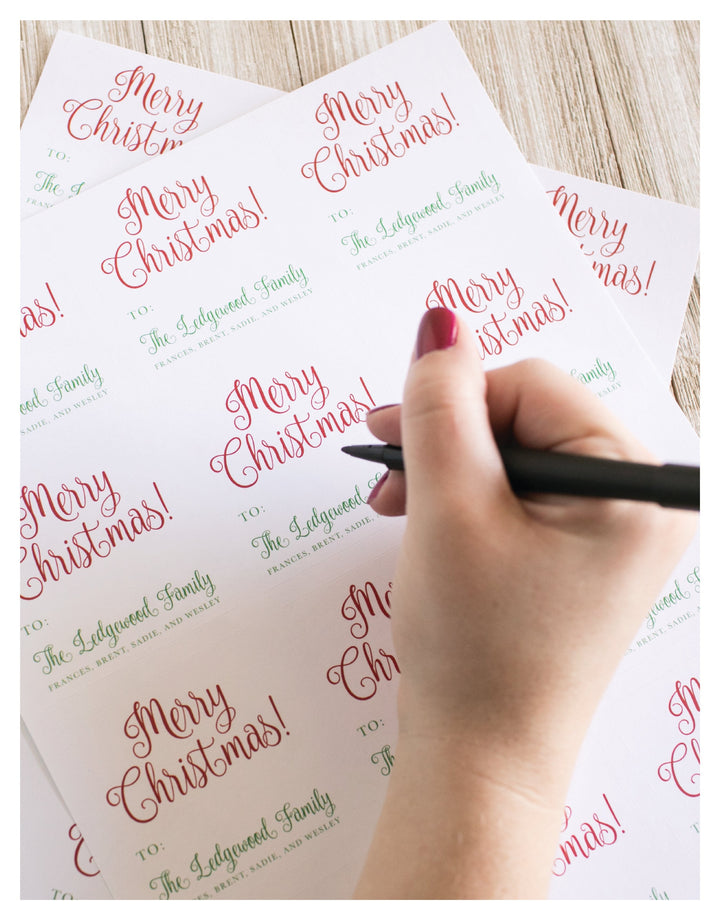 Merry
TO:
The
Merry
Christmas!
TO:
The Ledgewood Family
FRANCES, BRENT, SADIE, AND WESLEY
Merry
Christmas!
TO:
The Ledgewood Family
FRANCES, BRENT, SADIE, AND WESLEY
Merry
Family
AND WESLEY
Merry
Merry
Christmas!
TO:
The Ledgewood
FRANCES, BRENT, SADIE,
Merry
Christmas!
TO:
The Ledgewood Family
FRANCES, BRENT, SADIE, AND WESLEY
TO:
The
Merry
Christmas!
TO:
The Ledgewood Family
BRENT, SADIE, AND WESLEY
TO: